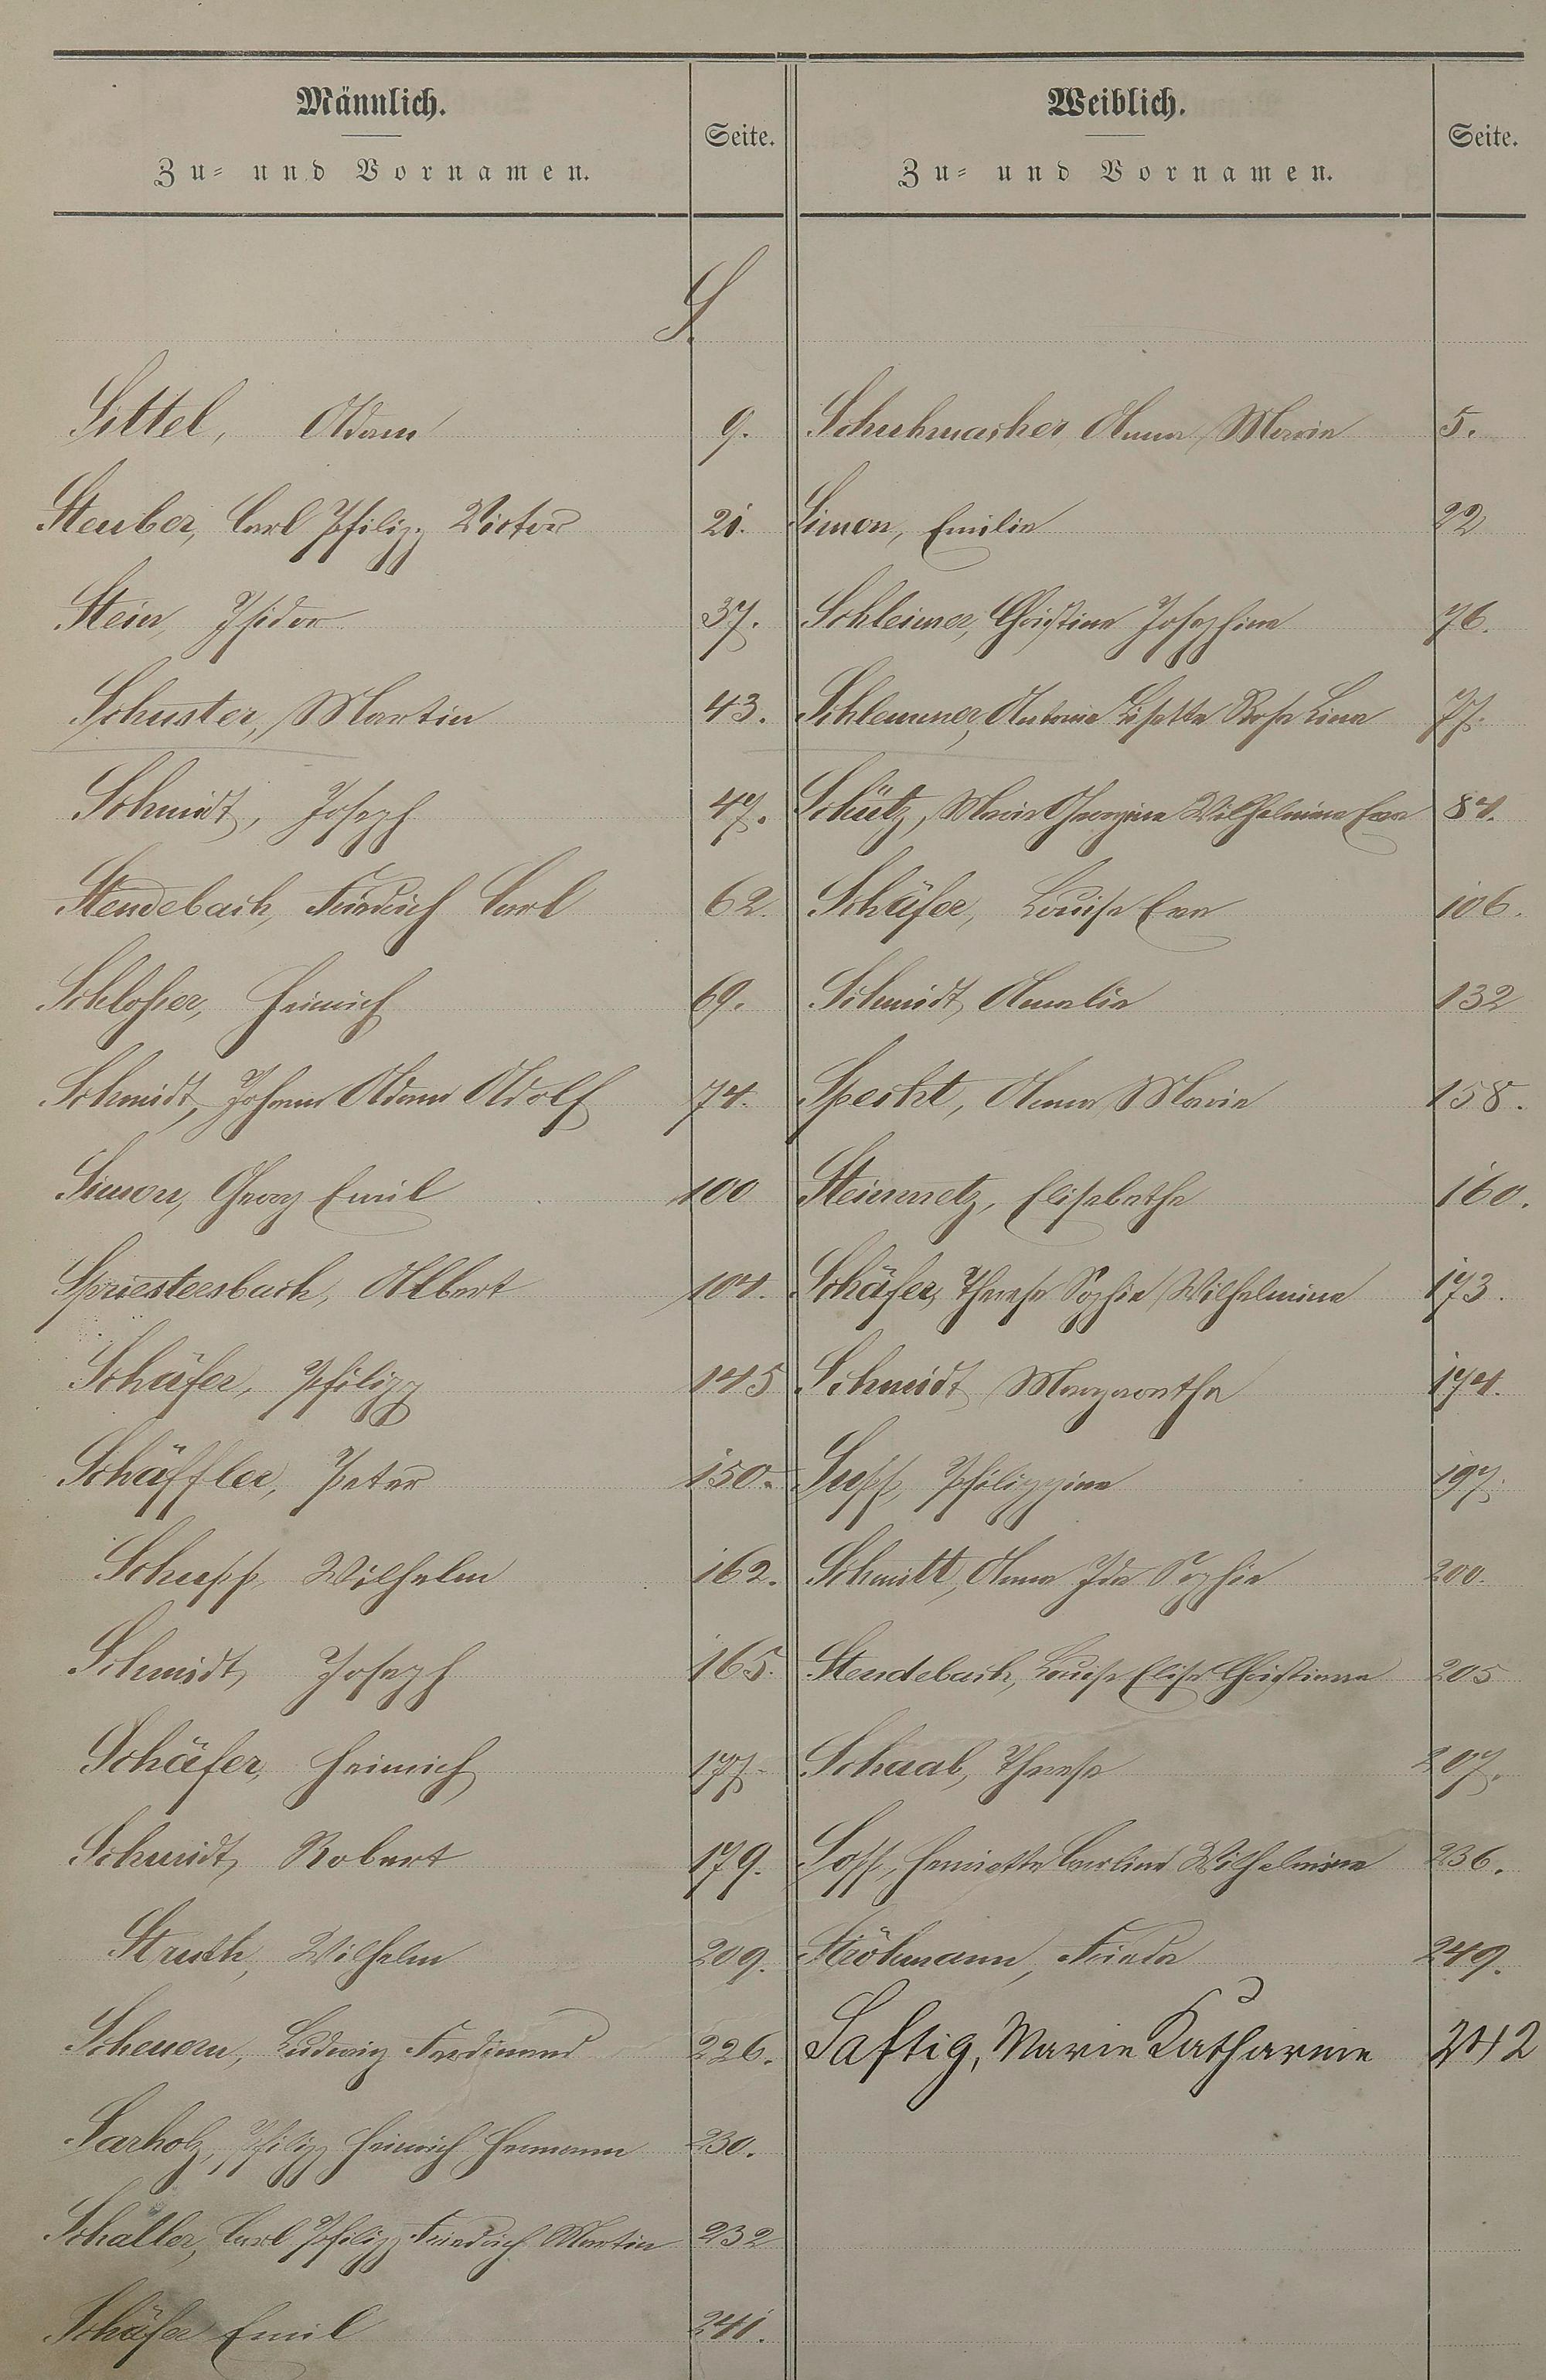 Männlich.
Zu- und Vornamen.
Seite.
Weiblich.
Zu- und Vornamen.
Seite.
S.
Sittel, Adam 9.
Steuber, Carl Philipp Victor 21.
Stein, Isidor 37.
Schuster, Martin 43.
Schmidt, Joseph 47.
Stendebach, Friedrich Carl 62.
Schloßer, Heinrich 69.
Schmidt, Johann Adam Adolf 74.
Simon, Georg Emil 100
Spriestersbach, Albert 104.
Schäfer, Philipp 145
Schäffler, Peter 150.
Schupp, Wilhelm 162.
Schmidt, Joseph 165.
Schäfer, Heinrich 177.
Schmidt, Robert 179.
Struth, Wilhelm 209.
Scheuern, Ludwig Ferdinand 226.
Sarholz, Philipp Heinrich Hermann 230.
Schaller, Carl Philipp Friedrich Martin 232
Schäfer Emil 241.
Schuhmacher, Anna Maria 5.
Simon, Emilie 22
Schleimer, Christine Josephine 76.
Schlemmer, Antonie Lisette Rosa Lina 77.
Schütz, Maria Georgine Wilhelmine Eva 84.
Schäfer, Louise Eva 106.
Schmidt, Amalie 132
Specht, Anna Maria 158.
Steinmetz, Elisabetha 160.
Schäfer, Therese Sophie Wilhelmine 173.
Schmidt Margaretha 174.
Supp, Philippine 197.
Schmitt, Anna Ida Sophie 200.
Stendebach, Louise Elise Christiane 205
Schaab, Therese 207.
Sopp, Henriette Caroline Wilhelmine 236.
Ströhmann, Frieda 249.
Saftig, Marie Katharina 242